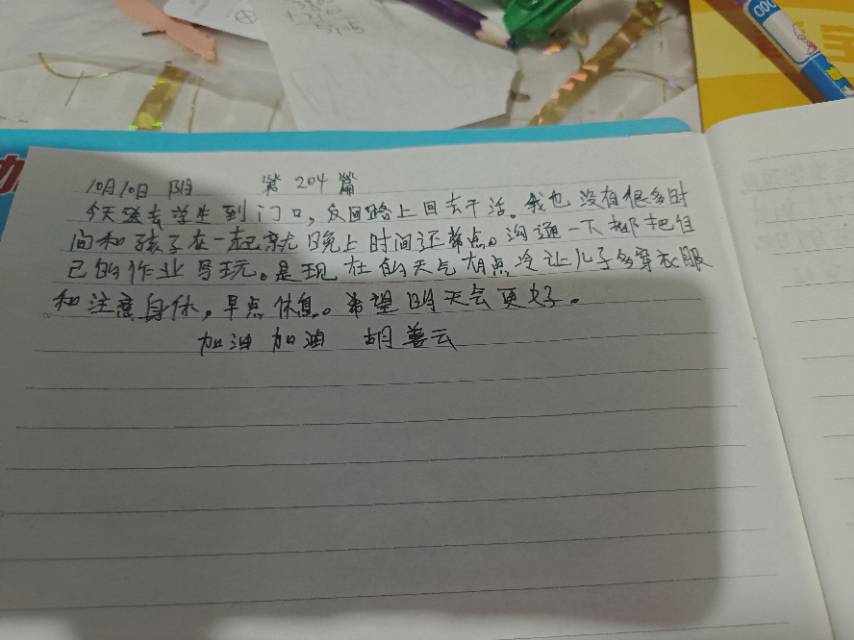 10月10日 阴 第 204 篇
今天送去学生到门口，反回路上回去干活。我也没有很多时
间和孩子在一起就晚上时间还常点。沟通一下都把自
己的作业写玩。是现在的天气有点冷让儿子多穿衣服
和注意身休，早点休息。希望明天会更好。
加油加油 胡善云